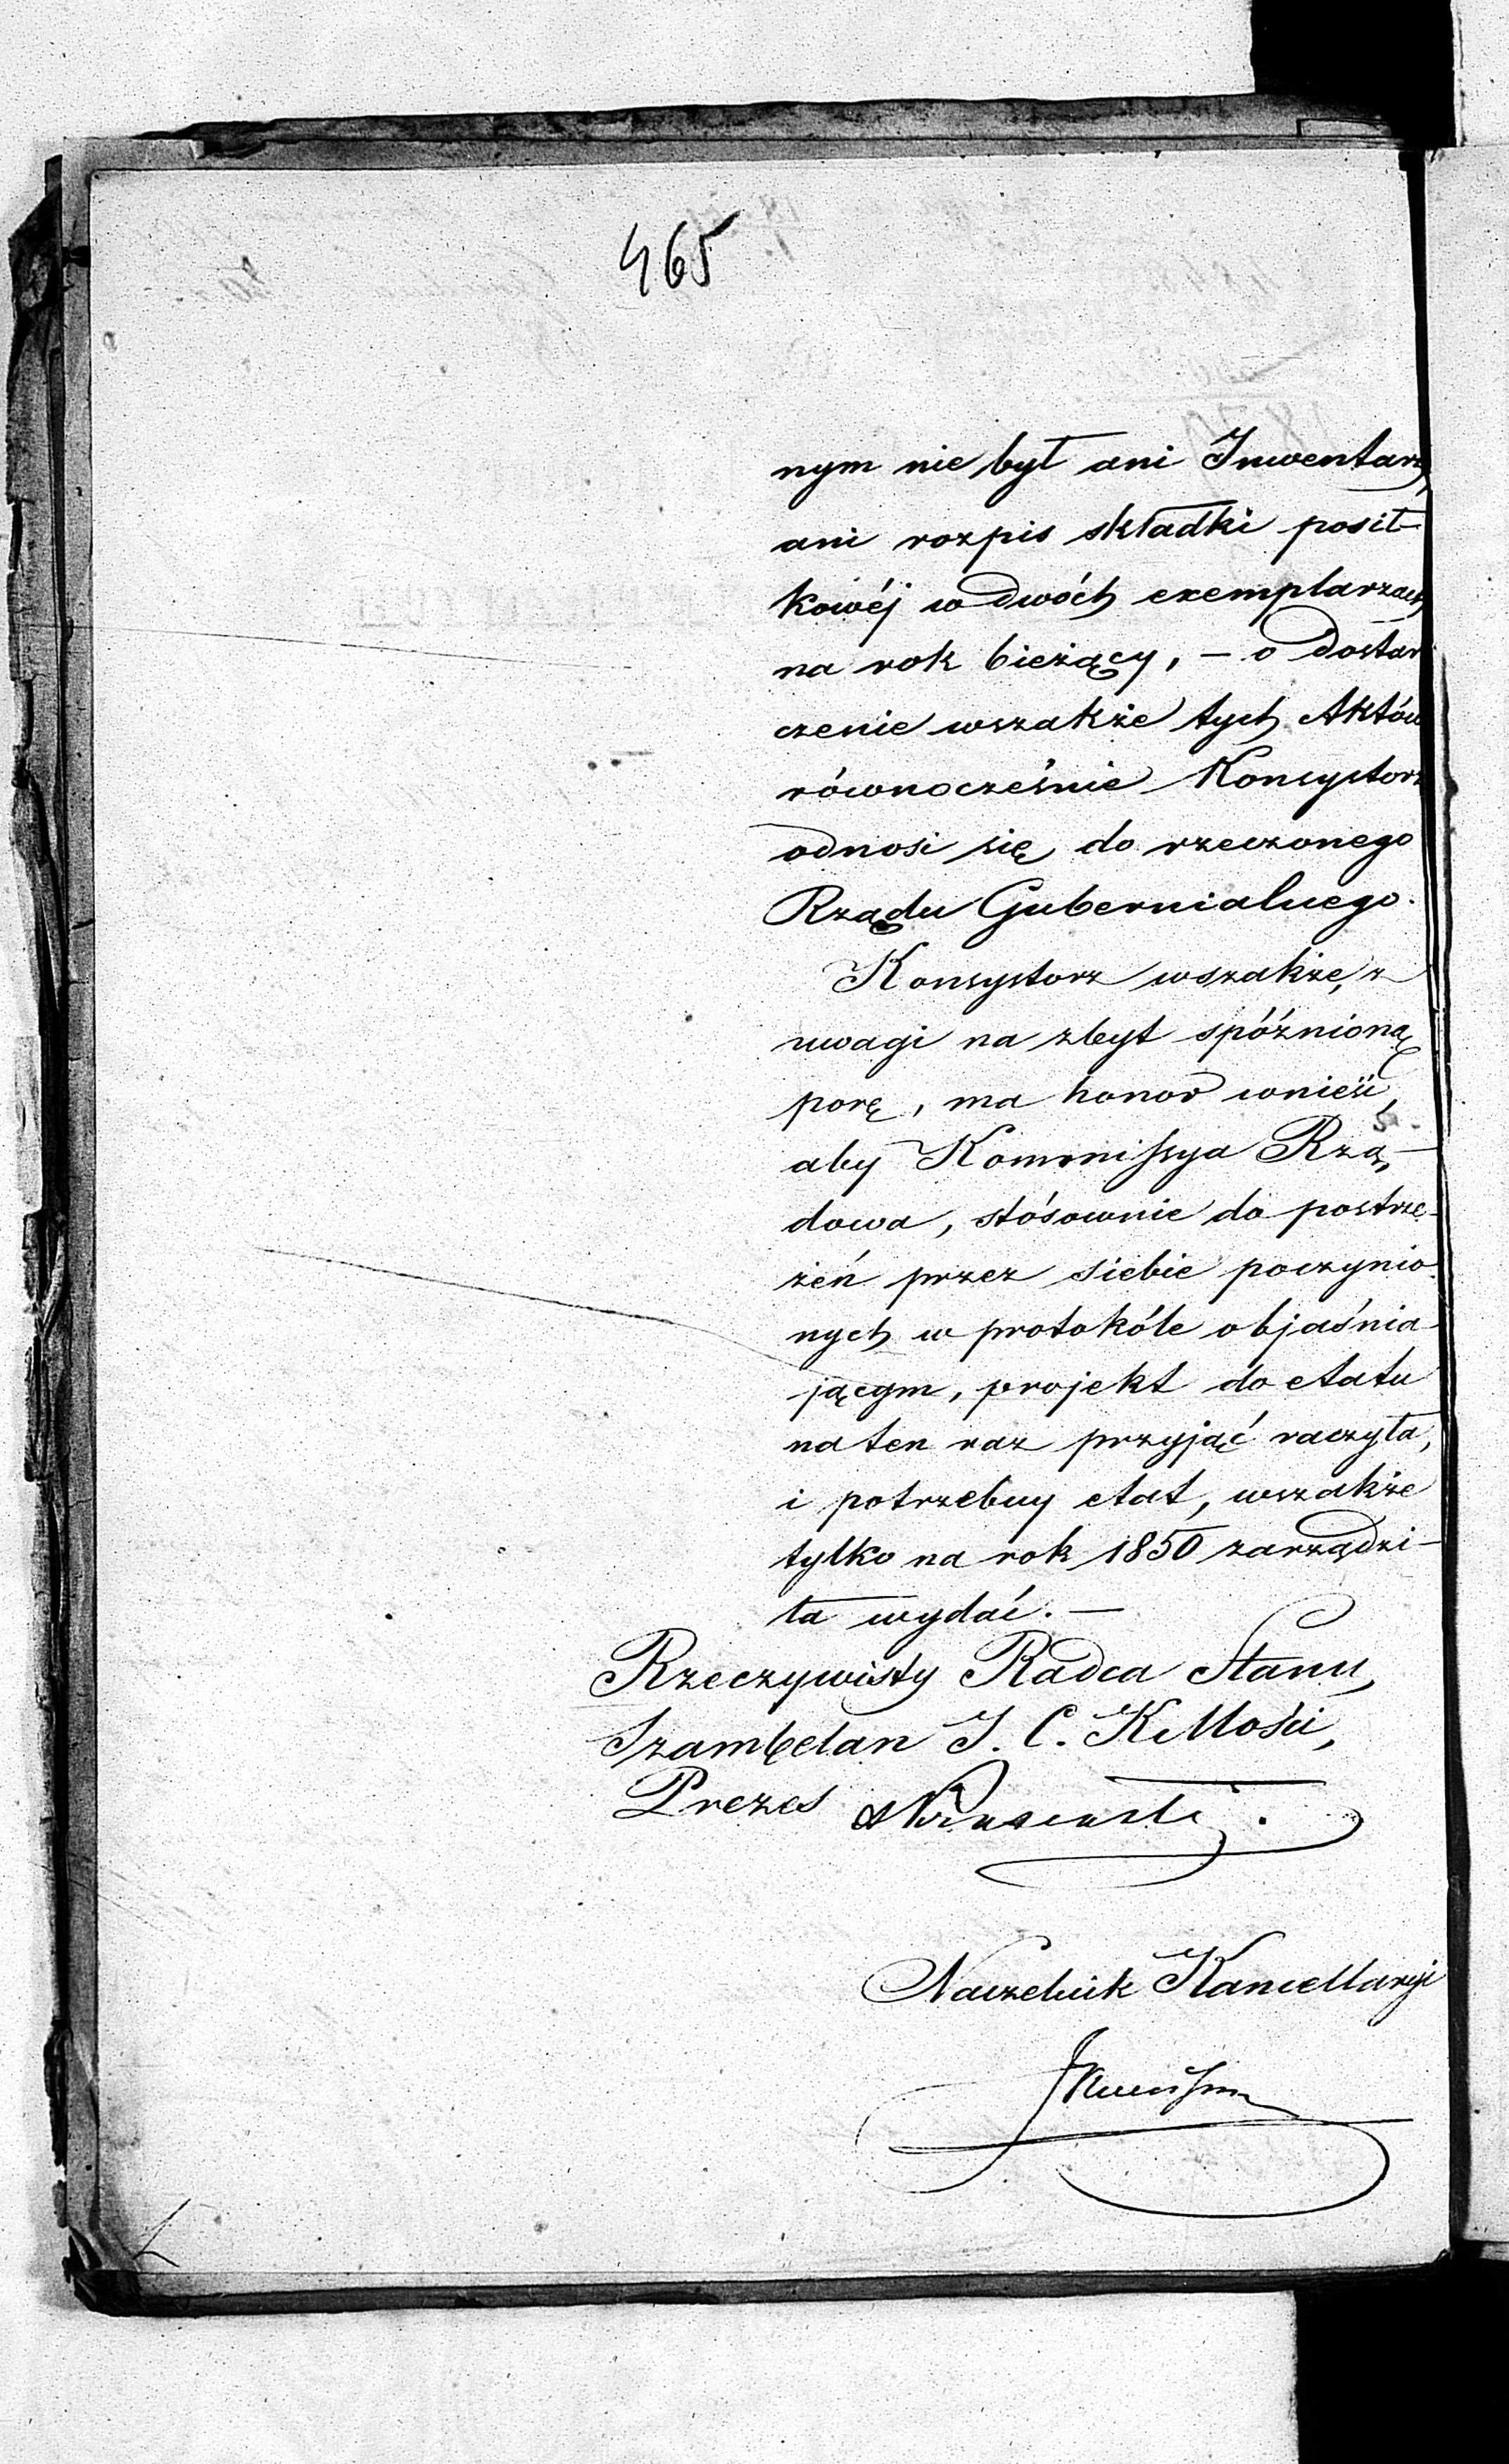 465
nym nie był ani Inwentarz,
ani rozpis składki posił-
kowéj w dwóch exemplarzach
na rok bieżący, – o dostar
czenie wszakże tych Aktów
równocześnie Konsystorz
odnosi się do rzeczonego
Rządu Gubernialnego.
Konsystorz wszakże, z
uwagi na zbyt spóźnioną
porę, ma honor wnieść,
aby Kommissya Rzą-
dowa, stósownie do postrze-
żeń przez siebie poczynio-
nych w protokóle objaśnia-
jącym, projekt do etatu
na ten raz przyjąć raczyła,
i potrzebny etat, wszakże
tylko na rok 1850 zarządzi-
ła wydać. –
Rzeczywisty Radca Stanu,
Szambelan J. C. K Mości,
Prezes
Naczelnik Kancellaryi